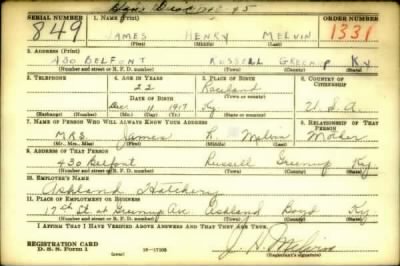 SERIAL NUMBER 1. NAME (Print) ORDER NUMBER
849 JAMES HENRY MELVIN 1331
(First) (Middle) (Last)
2. ADDRESS (Print)
430 BELFONT RUSSELL GREENUP Ky
(Number and street or R. F. D. number) (Town) (County) (State)
3. TELEPHONE 4. AGE IN YEARS 5. PLACE OF BIRTH 6. COUNTRY OF CITIZENSHIP
22 Raceland
DATE OF BIRTH (Town or county)
Dec 11 1917 Ky U.S.A.
(Exchange) (No.) (Mo.) (Day) (Yr.) (State or country)
7. NAME OF PERSON WHO WILL ALWAYS KNOW YOUR ADDRESS 8. RELATIONSHIP OF THAT PERSON
MRS. James R Melvin Mother
(Mr., Mrs., Miss) (First) (Middle) (Last)
9. ADDRESS OF THAT PERSON
430 Belfont Russell Greenup Ky
(Number and street or R. F. D. number) (Town) (County) (State)
10. EMPLOYER'S NAME
Ashland Hatchery
11. PLACE OF EMPLOYMENT OR BUSINESS
17th St. at Greenup Ave Ashland Boyd Ky
(Number and street or R. F. D. number) (Town) (County) (State)
I AFFIRM THAT I HAVE VERIFIED ABOVE ANSWERS AND THAT THEY ARE TRUE.
REGISTRATION CARD J. H. Melvin
D. S. S. Form 1 16—17105 (Registrant's signature)